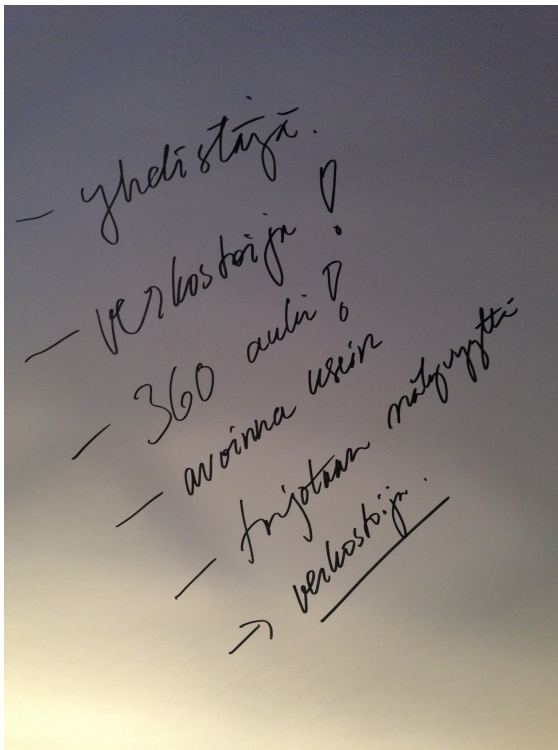 - yhdistäjä.
- verkostoija!
- 360 auki!
- avoinna usein
- tarjotaan näkyvyyttä
→ verkostoija.